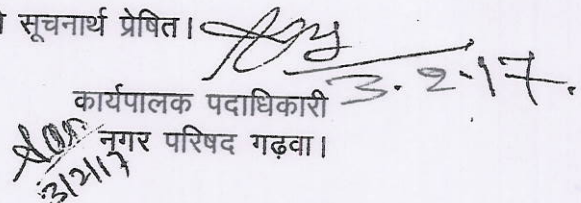 सूचनार्थ प्रेषित।
3.2.17.
कार्यपालक पदाधिकारी
नगर परिषद गढ़वा।
3/2/17